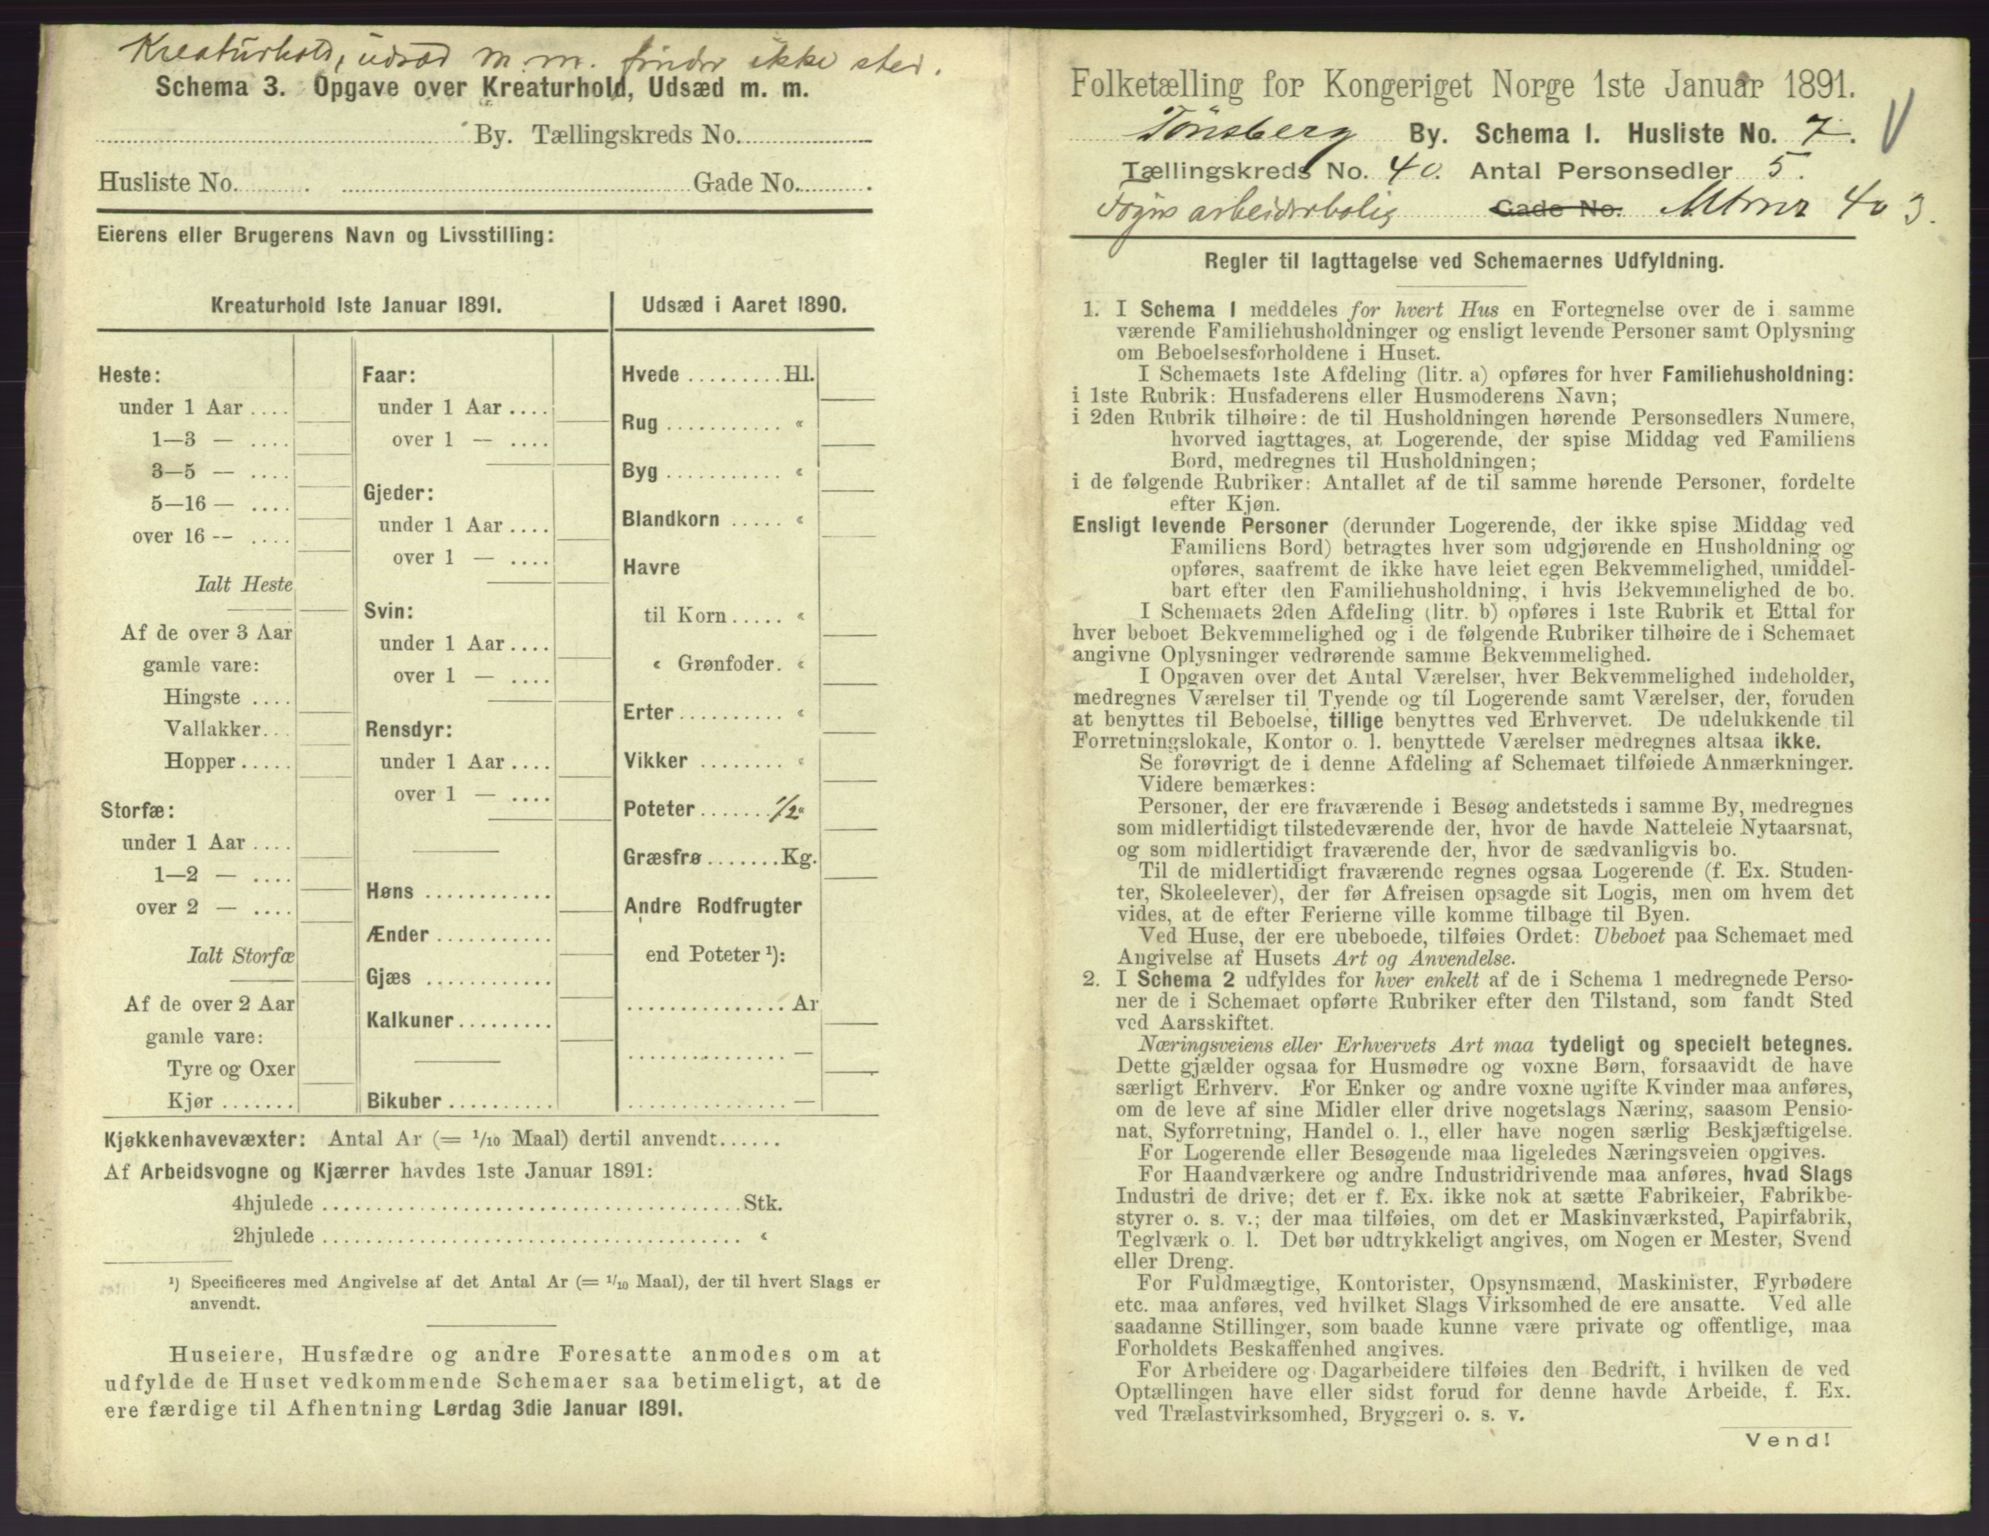 Kreaturhold, udsæd m.m. finder ikke sted.
Schema 3. Opgave over Kreaturhold, Udsæd m. m.
By. Tællingskreds No.
Husliste No. Gade No.
Eierens eller Brugerens Navn og Livsstilling:
Kreaturhold 1ste Januar 1891.
Heste:
under 1 Aar ....
1—3 — ....
3—5 — ....
5—16 — ....
over 16 -- ....
Ialt Heste
Af de over 3 Aar
gamle vare:
Hingste ....
Vallakker...
Hopper.....
Storfæ:
under 1 Aar ....
1—2 — ....
over 2 — ....
Ialt Storfæ
Af de over 2 Aar
gamle vare:
Tyre og Oxer
Kjør.......
Faar:
under 1 Aar ....
over 1 — ....
Gjeder:
under 1 Aar ....
over 1 — ....
Svin:
under 1 Aar....
over 1 — ....
Rensdyr:
under 1 Aar ....
over 1 — ....
Høns ............
Ænder...........
Gjæs ............
Kalkuner.........
Bikuber..........
Udsæd i Aaret 1890.
Hvede .........Hl.
Rug ........... «
Byg ........... «
Blandkorn ..... «
Havre
til Korn..... «
« Grønfoder. «
Erter.......... «
Vikker ........ «
Poteter....... 1/2 «
Græsfrø.......Kg.
Andre Rodfrugter
end Poteter ¹):
...............Ar
............... —
............... —
Kjøkkenhavevæxter: Antal Ar (= 1/10 Maal) dertil anvendt......
Af Arbeidsvogne og Kjærrer havdes 1ste Januar 1891:
4hjulede ......................................Stk.
2hjulede ...................................... «
¹) Specificeres med Angivelse af det Antal Ar (= 1/10 Maal), der til hvert Slags er
anvendt.
Huseiere, Husfædre og andre Foresatte anmodes om at
udfylde de Huset vedkommende Schemaer saa betimeligt, at de
ere færdige til Afhentning Lørdag 3die Januar 1891.
Folketælling for Kongeriget Norge 1ste Januar 1891.
Tönsberg By. Schema I. Husliste No. 7. V
Tællingskreds No. 40. Antal Personsedler 5.
arbeiderbolig Gade No. Mtrnr 403.
Regler til Iagttagelse ved Schemaernes Udfyldning.
1. I Schema I meddeles for hvert Hus en Fortegnelse over de i samme
værende Familiehusholdninger og ensligt levende Personer samt Oplysning
om Beboelsesforholdene i Huset.
I Schemaets 1ste Afdeling (litr. a) opføres for hver Familiehusholdning:
i 1ste Rubrik: Husfaderens eller Husmoderens Navn;
i 2den Rubrik tilhøire: de til Husholdningen hørende Personsedlers Numere,
hvorved iagttages, at Logerende, der spise Middag ved Familiens
Bord, medregnes til Husholdningen;
i de følgende Rubriker: Antallet af de til samme hørende Personer, fordelte
efter Kjøn.
Ensligt levende Personer (derunder Logerende, der ikke spise Middag ved
Familiens Bord) betragtes hver som udgjørende en Husholdning og
opføres, saafremt de ikke have leiet egen Bekvemmelighed, umiddel-
bart efter den Familiehusholdning, i hvis Bekvemmelighed de bo.
I Schemaets 2den Afdeling (litr. b) opføres i 1ste Rubrik et Ettal for
hver beboet Bekvemmelighed og i de følgende Rubriker tilhøire de i Schemaet
angivne Oplysninger vedrørende samme Bekvemmelighed.
I Opgaven over det Antal Værelser, hver Bekvemmelighed indeholder,
medregnes Værelser til Tyende og til Logerende samt Værelser, der, foruden
at benyttes til Beboelse, tillige benyttes ved Erhvervet. De udelukkende til
Forretningslokale, Kontor o. l. benyttede Værelser medregnes altsaa ikke.
Se forøvrigt de i denne Afdeling af Schemaet tilføiede Anmærkninger.
Videre bemærkes:
Personer, der ere fraværende i Besøg andetsteds i samme By, medregnes
som midlertidigt tilstedeværende der, hvor de havde Natteleie Nytaarsnat,
og som midlertidigt fraværende der, hvor de sædvanligvis bo.
Til de midlertidigt fraværende regnes ogsaa Logerende (f. Ex. Studen-
ter, Skoleelever), der før Afreisen opsagde sit Logis, men om hvem det
vides, at de efter Ferierne ville komme tilbage til Byen.
Ved Huse, der ere ubeboede, tilføies Ordet: Ubeboet paa Schemaet med
Angivelse af Husets Art og Anvendelse.
2. I Schema 2 udfyldes for hver enkelt af de i Schema 1 medregnede Perso-
ner de i Schemaet opførte Rubriker efter den Tilstand, som fandt Sted
ved Aarsskiftet.
Næringsveiens eller Erhvervets Art maa tydeligt og specielt betegnes.
Dette gjælder ogsaa for Husmødre og voxne Børn, forsaavidt de have
særligt Erhverv. For Enker og andre voxne ugifte Kvinder maa anføres,
om de leve af sine Midler eller drive nogetslags Næring, saasom Pensio-
nat, Syforretning, Handel o. l., eller have nogen særlig Beskjæftigelse.
For Logerende eller Besøgende maa ligeledes Næringsveien opgives.
For Haandværkere og andre Industridrivende maa anføres, hvad Slags
Industri de drive; det er f. Ex. ikke nok at sætte Fabrikeier, Fabrikbe-
styrer o. s. v.; der maa tilføies, om det er Maskinværksted, Papirfabrik,
Teglværk o. l. Det bør udtrykkeligt angives, om Nogen er Mester, Svend
eller Dreng.
For Fuldmægtige, Kontorister, Opsynsmænd, Maskinister, Fyrbødere
etc. maa anføres, ved hvilket Slags Virksomhed de ere ansatte. Ved alle
saadanne Stillinger, som baade kunne være private og offentlige, maa
Forholdets Beskaffenhed angives.
For Arbeidere og Dagarbeidere tilføies den Bedrift, i hvilken de ved
Optællingen have eller sidst forud for denne havde Arbeide, f. Ex.
ved Trælastvirksomhed, Bryggeri o. s. v.
Vend!